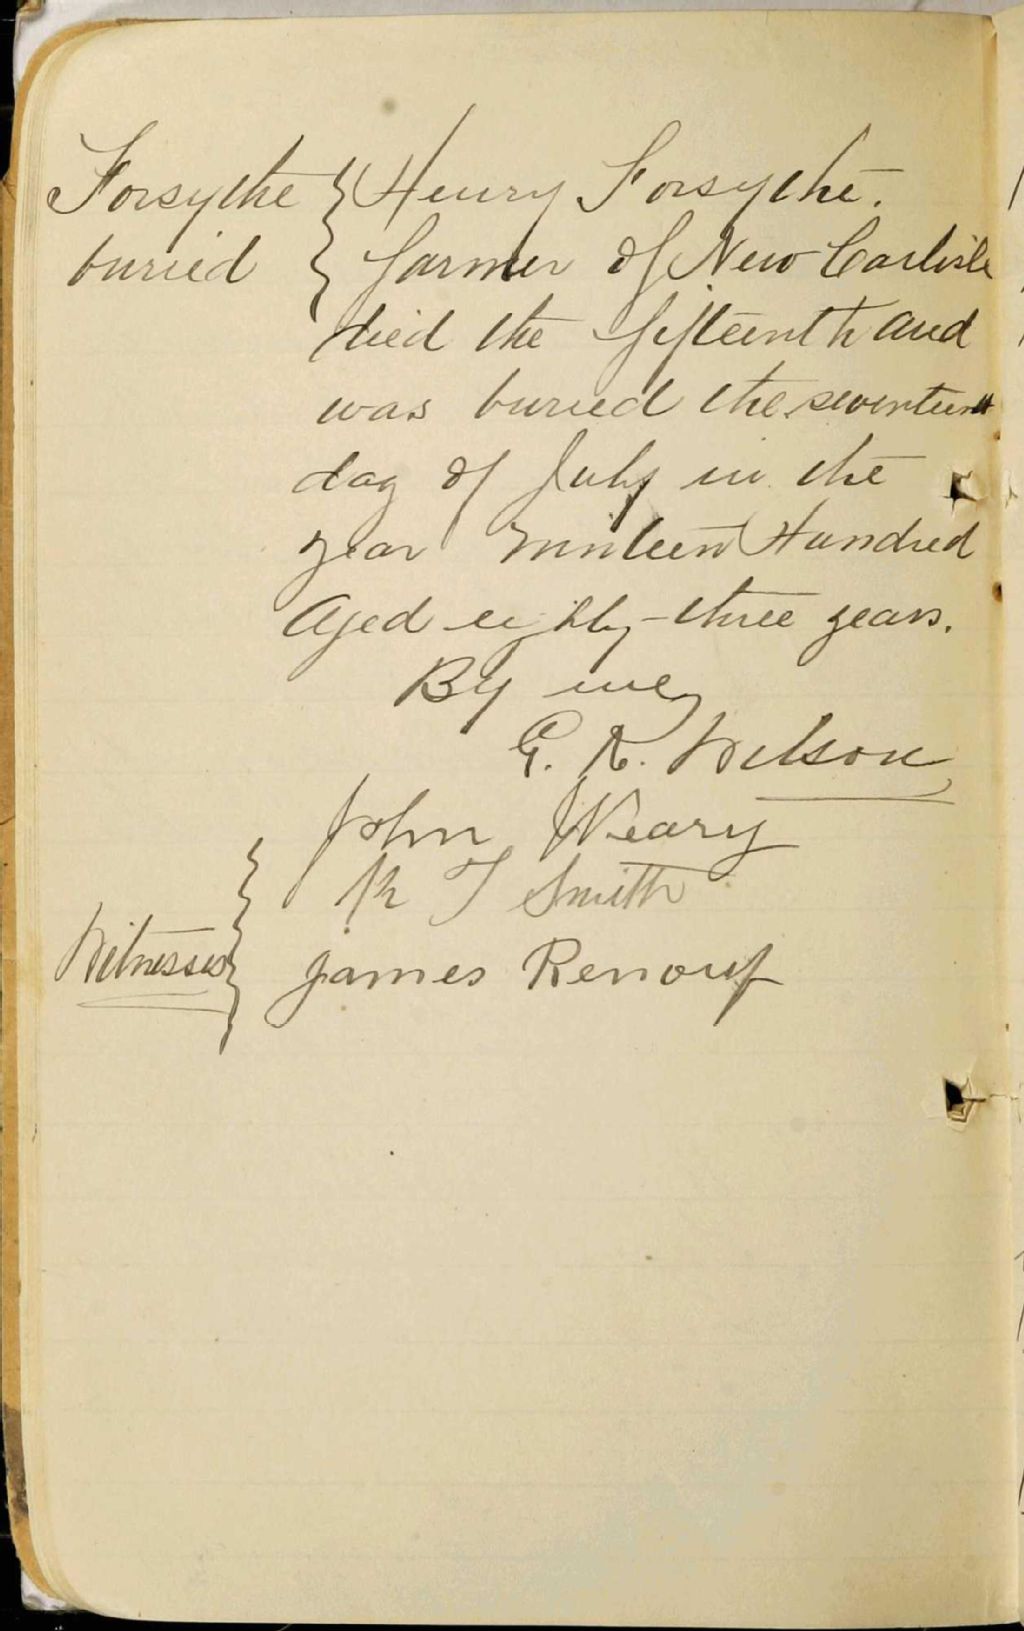 Forsythe { Henry Forsythe.
buried { farmer of New Carlisle
died the fifteenth and
was buried the seventeenth
day of July in the
year ninteen Hundred
Aged eighty-three years.
By me
G. R. Wilson
John Weary
R T Smith
Witnesses { James Renouf